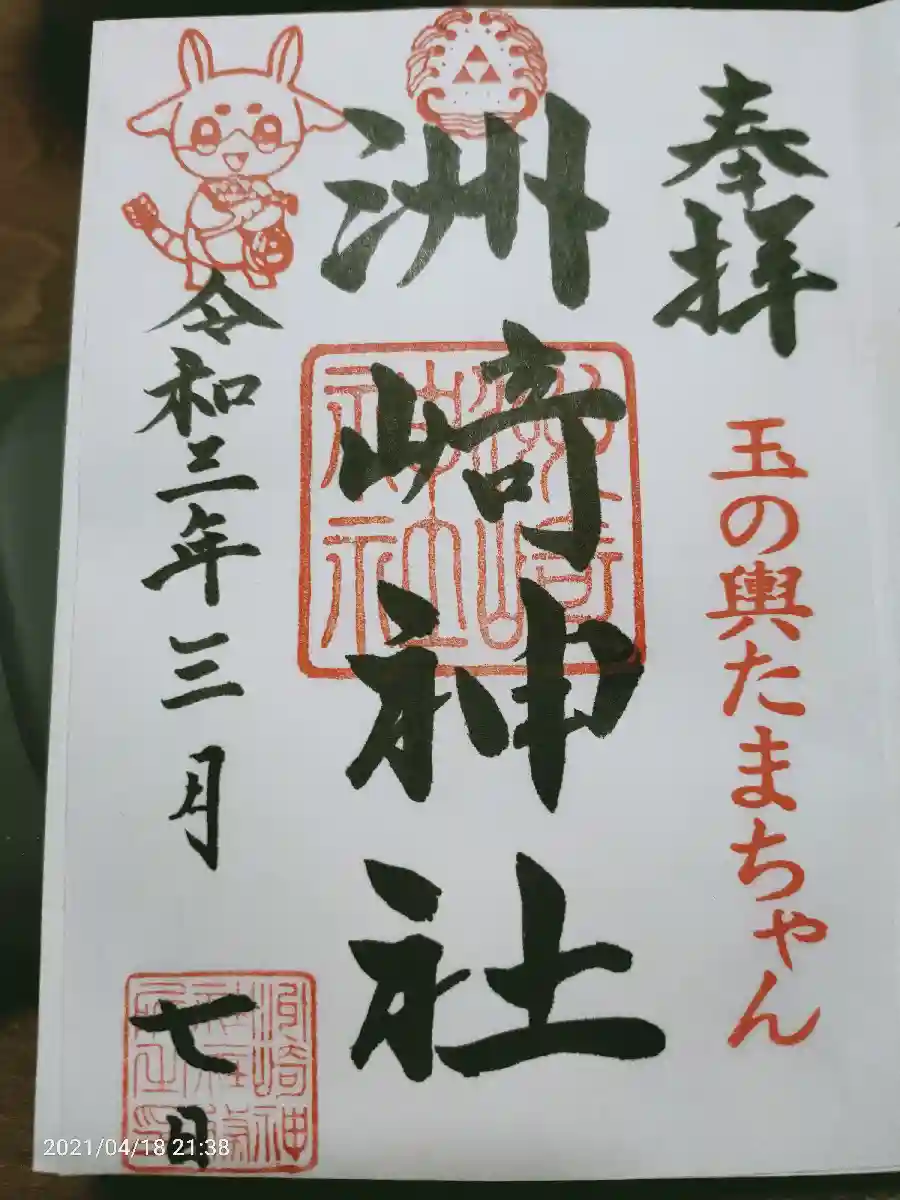 奉拝
玉の輿たまちゃん
洲崎神社
令和三年三月
七日
2021/04/18 21:38